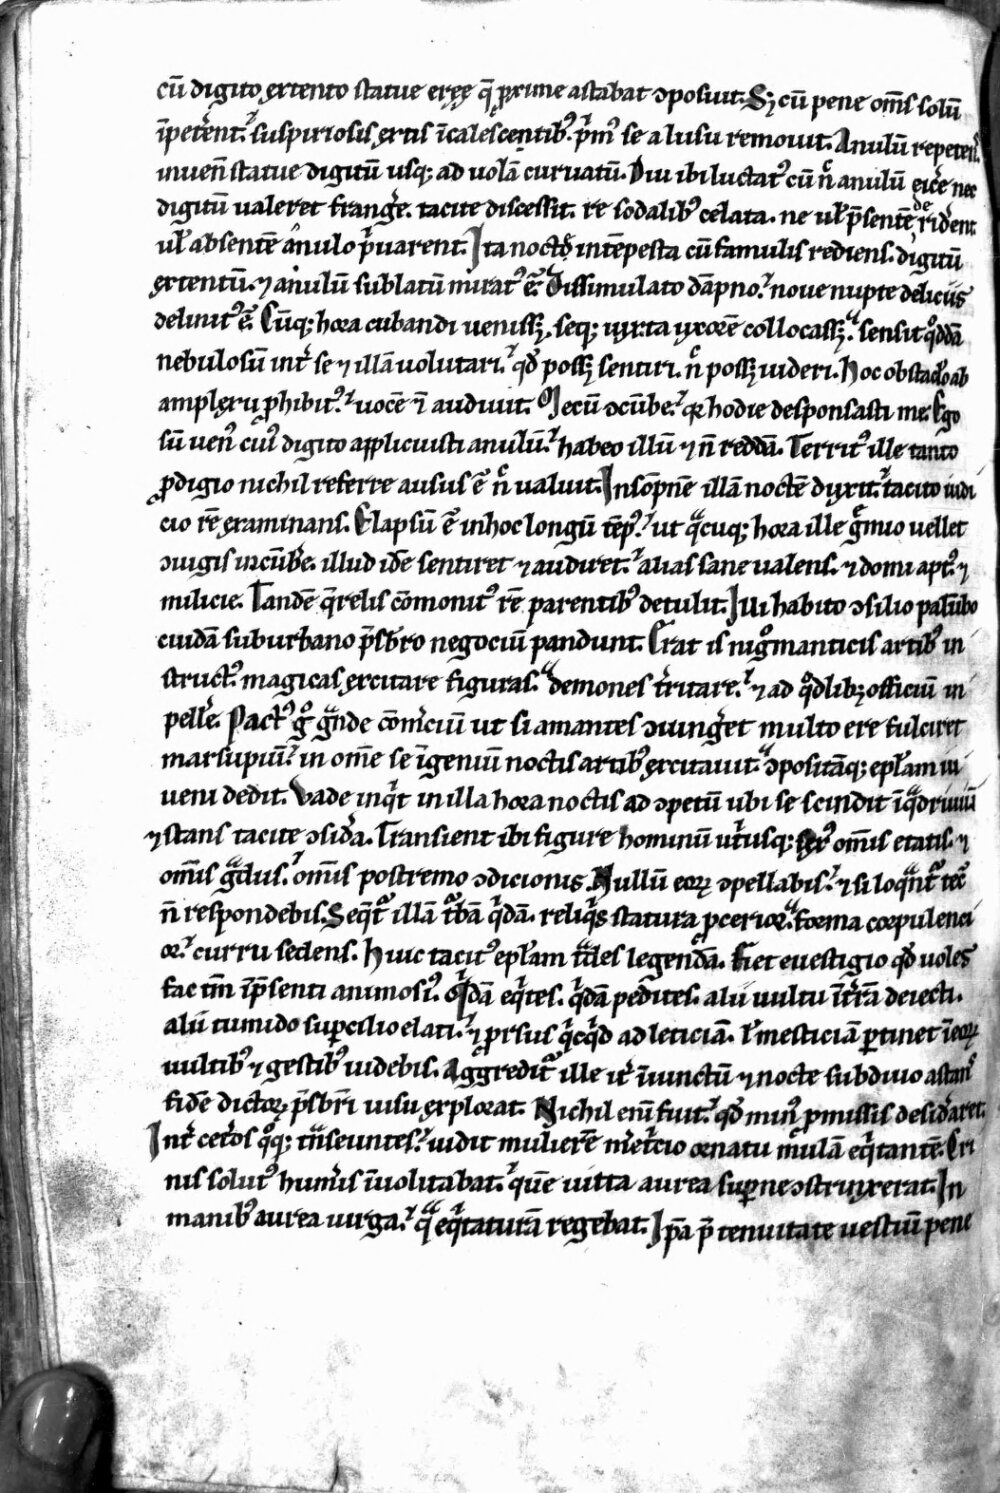 cū digito extento statue eręę q̄ ꝓxime astabat ↄposuit. Sꝫ cū pene om̄s solū
īpetēnt.' suspiriosis extis īcalescentib᾽. p̓m᾽ se a lusu remouit. Anulū repetens.
inuen̄ statue digitū usq; ad uolā curuatū. Diu ibi luctat᾽ cū n̄ anulū eice nec
digitū ualeret frang̓e. tacite discessit. re sodalib᾽ celata. ne uł p̄sentē de riderent
uł absentē anulo p̓uarent. Ita nocte intēpesta cū famulis rediens. digitū
extentū. ⁊ anulū sublatū mirat᾽ ē. Dissimulato dāpno.' noue nupte deliciis
delinit᾽ ē. Cūq; hora cubandi uenissꝫ. seq; iuxta uxorē collocassꝫ.' sensit qͦddā
nebulosū int̓ se ⁊ illā uolutari.' qd̓ possꝫ sentiri. n̄ possꝫ uideri. Hoc obstaclo ab
amplexu ꝓhibit᾽.' uocē ē audiuit. Mecū ↄcūbe.' qꝛ hodie desponsasti me. Ego
sū uen᾽ cui᾽ digito applicuisti anulū.' habeo illū ⁊ n̄ reddā. Territ᾽ ille tanto
ꝓdigio nichil referre ausus ē n̄ ualuit. Insōpnē illā noctē duxit.' tacito iudi
cio rē examinans. Elapsū ē in hoc longū tēp᾽.' ut qͣcuq; hora ille g̓mio uellet
ↄiugis incūb̓e. illud idē sentiret ⁊ audiret.' alias sane ualens. ⁊ domi apt᾽. ⁊
milicie. Tandē q̄relis cōmonit᾽ rē parentib᾽ detulit. Illi habito ↄsilio palūbo
cuidā suburbano p̄sb̄ro negociū pandunt. Erat is nigͦmanticis artib᾽ in
struct᾽. magicas excitare figuras.' demones t̓ritare.' ⁊ ad qͦdlibꝫ officiū in
pell̓e. Pact᾽ gͦ gͣnde cōm̓ciū ut si amantes ↄiung̓et multo ere fulciret
marsupiū.' in om̄e se īgeniū noctis artib᾽ excitauit.' ↄpositāq; epl̄am iu
ueni dedit. Vade inqͥt in illa hora noctis ad ↄpetū ubi se scindit īqͣdriuiū
⁊ stans tacite ↄsid̓a. Transient ibi figure hominū ut̓usq; sex᾽ om̄is etatis. ⁊
om̄is gͣdus.' om̄is postremo ↄdicionis. Nullū eoꝝ ↄpellabis.' ⁊ si loqͣnt᾽ tec̄
n̄ respondebis. Seqͥt᾽ illā t᾽bā qͥdā. reliqͥs statura ꝓcerior.' forma corpulenci
or.' curru sedens. Huic tacit᾽ epl̄am tͣdes legendā. Fiet euestigio qd̓ uoles
fac tm̄ īp̄senti animos᾽. Qͥdā eqͥtes. qͥdā pedites. alii uultu īt̓rā deiecti.
alii tumido supcilio elati.' ⁊ ꝓrsus qͥcqͥd ad leticiā. ł mesticiā ꝑtinet ī eoꝝ
uultib᾽ ⁊ gestib᾽ uidebis. Aggredit᾽ ille it̓ īiunctū ⁊ nocte subdiuo astans
fidē dictoꝝ p̄sb̄ri uisu explorat. Nichil enī fuit.' qd̓ min᾽ ꝓmissis desid̓aret.
Int̓ cet̓os qͦq; tn̄seuntes.' uidit mulierē m̓et̓cio ornatu mulā eqͥtantē. Cri
nis solut᾽ hum̓is īuolitabat.' quē uitta aurea supne ↄstruxerat. In
manib᾽ aurea uirga.' qͣ eqͥtaturā regebat. Ipͣa p̄ tenuitate uestiū pene